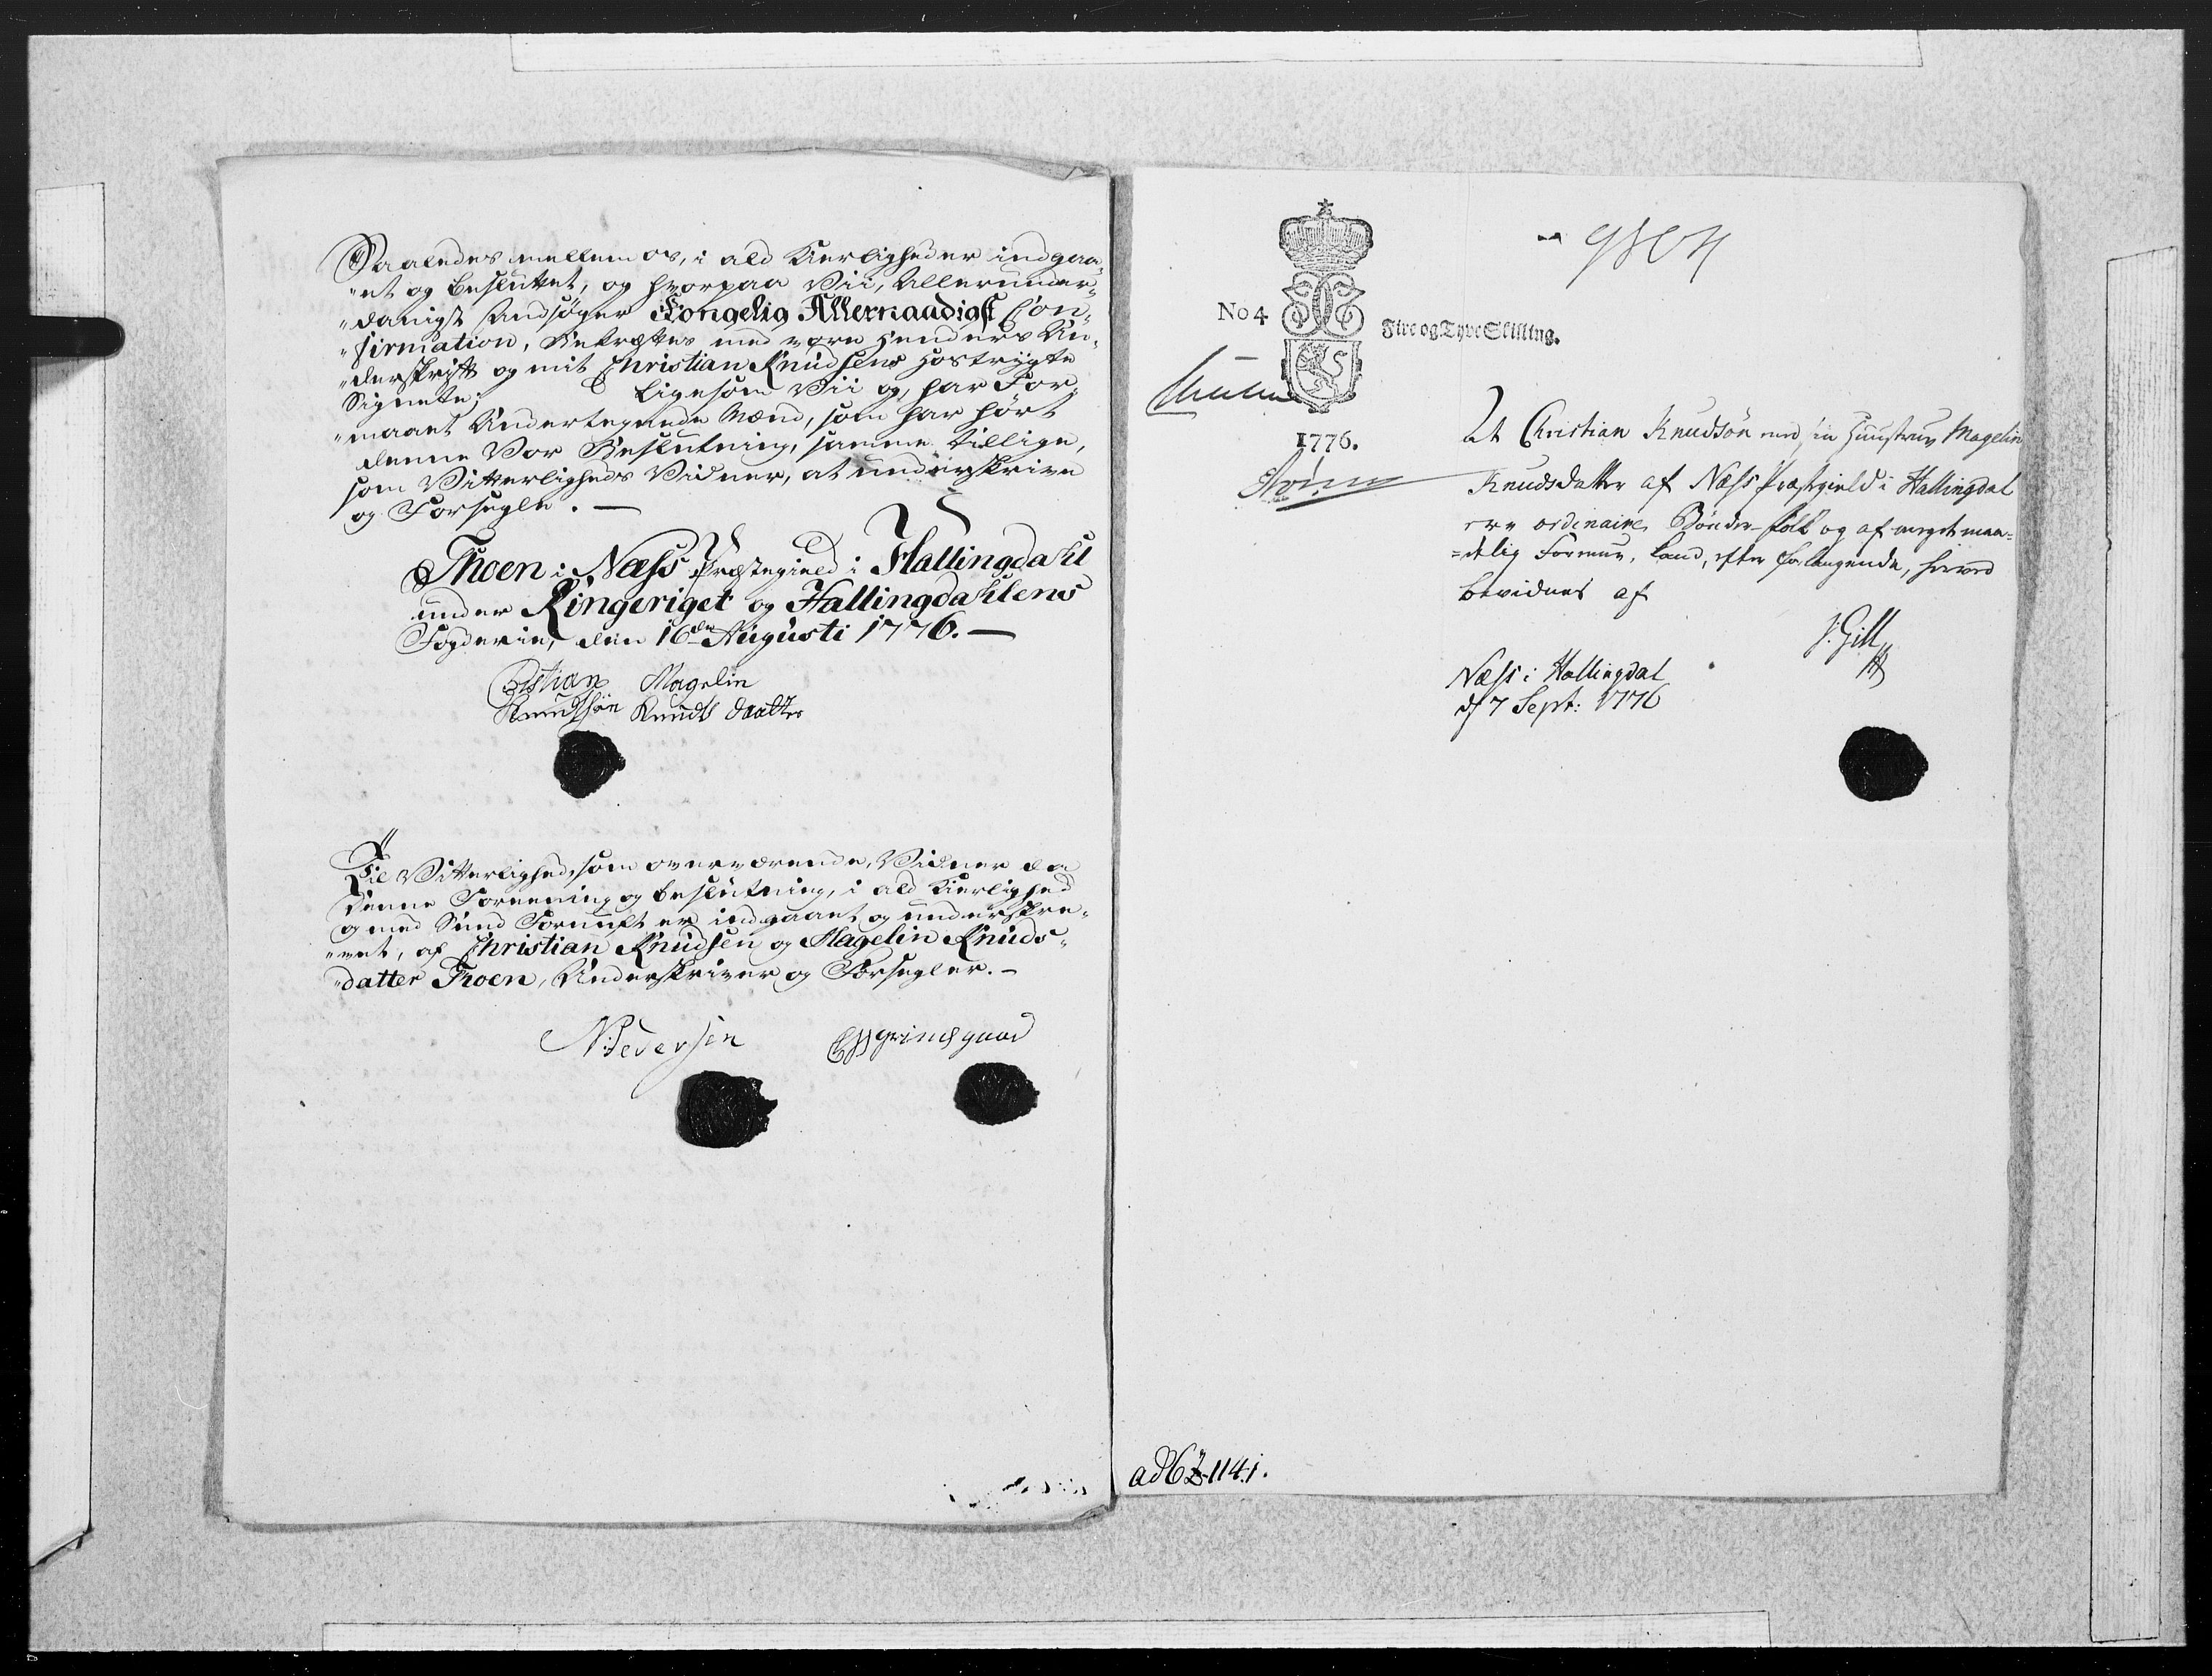 Saaledes mellem os, i ald Kierligheder indgaa„
„et og besluttet, og hvorpaa Vii, Allerunder„
„danigst Ansøger Kongelig Allernaadigst Con„
„firmation, Bekræftes med vore Henders Un„
„derskrift og mit Christian Knudsens hostrygte
Signete; Ligesom Vii og, har For„
„maaet Undertegnede Mænd, som har hørt
denne Vor Beslutning, samme tillige,
som Vitterligheds Vidner, at underskrive
og Forsegle. —
Thoen i Næss Præstegield i Hallingdahl
under Ringeriget og Hallingdahlens
Fogderie, den 16de Augusti 1776. —
Cristian Magelin
Knudssøn Knuds daatter
Til Vitterlighed, som overværende, Vidner da
denne Foreening og beslutning, i ald Kierlighed
og med Sund Fornuft er indgaaet og underskre„
„vet, af Christian Knudsen og Magelin Knuds„
„datter Thoen, Underskriver og Forsegler. —
NPedersen Grimsgaard
No 4
Fire og Tyve Skilling.
1776.
At Christian Knudsøn med sin Huustrue Magelin
Knudsdatter af Næss Præstegield i Hallingdal
ere ordinaire Bønder-folk og af meget maa=
=delig Formue, land, efter forlangende, herved
bevidnes af
J: Gill
Næss i Hallingdal
d 7 Sept: 1776
ad 6 Z 1141.